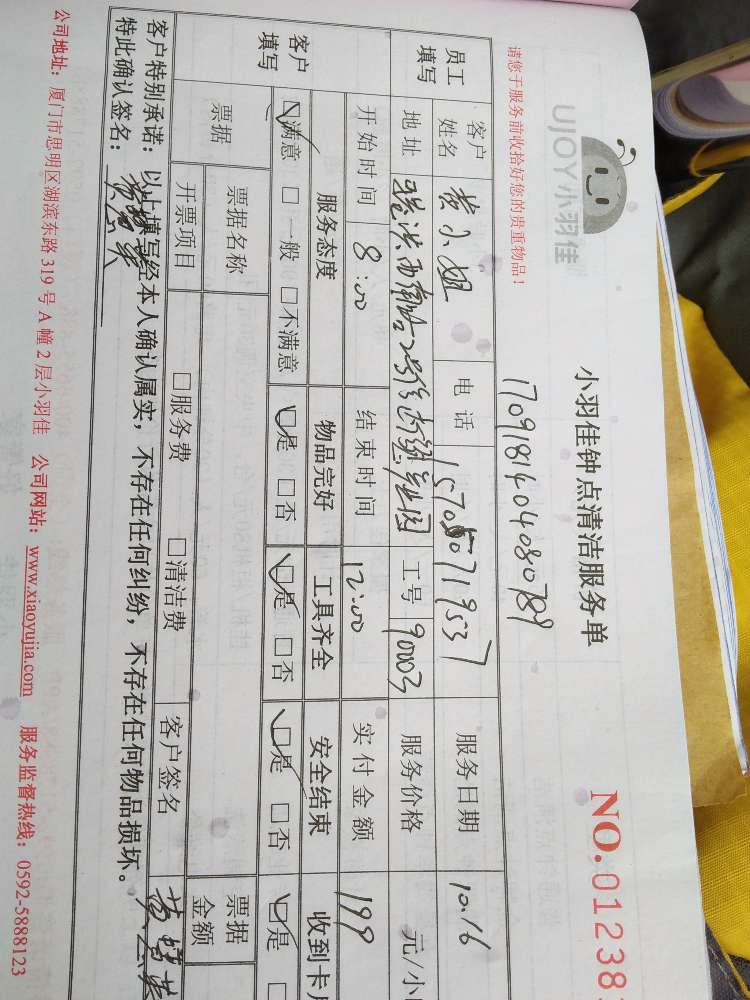 UJOY小羽佳
小羽佳钟点清洁服务单
NO.01238
请您于服务前收拾好您的贵重物品！
1709181404080789
员工填写
客户姓名 黄小姐 电话 157050719537 服务日期 10.16
地址 工号 90003 服务价格 元/小
开始时间 8:00 结束时间 12:00 实付金额 199
客户填写
服务态度 物品完好 工具齐全 安全结束 收到卡
☑满意 □一般 □不满意 ☑是 □否 ☑是 □否 ☑是 □否 ☑是
票据 票据名称 □服务费 □清洁费 票据金额
开票项目 客户签名
客户特别承诺：以上填写经本人确认属实，不存在任何纠纷，不存在任何物品损坏。
特此确认签名：
公司地址：厦门市思明区湖滨东路319号A幢2层小羽佳 公司网站：www.xiaoyujia.com 服务监督热线：0592-5888123